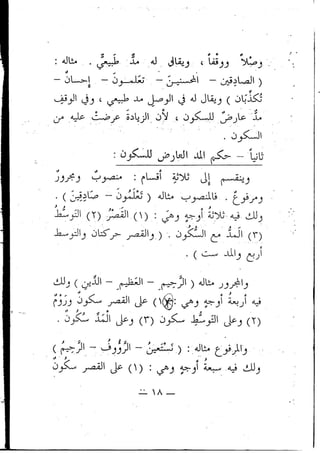 وصلاً ووقفاً ، ويقال له مدّ طبيعي . مثاله :
( الصادقين – المحسنين – تعلمون – إحسان –
تكذبان ) ويقال له في الوصل مد طبيعي ، وفي الوقف
مدّ عارض للسكون ، لأن الزيادة عرضت عليه من
السكون .
ثانياً – حكم المد العارض للسكون :
وينقسم إلى ثلاثة أقسام : منصوب ومجرور
ومرفوع . فالمنصوب مثاله ( تعلمون – صادقين ) .
ولك فيه ثلاثة أوجه وهي : (١) القصر (٢) التوسط
(٣) المدّ مع السكون . ( والقصر حركتان والتوسط
أربع والمد ست ) .
والمجرور مثاله ( الرجيم – العظيم – الدين ) ولك
فيه أربعة أوجه وهي : (١) على القصر سكون وروم
(٢) وعلى التوسط سكون (٣) وعلى المدّ سكون .
والمرفوع مثاله : ( نستعين – الرؤوف – الرحيم )
ولك فيه سبعة أوجه وهي : (١) على القصر سكون
– ١٨ –